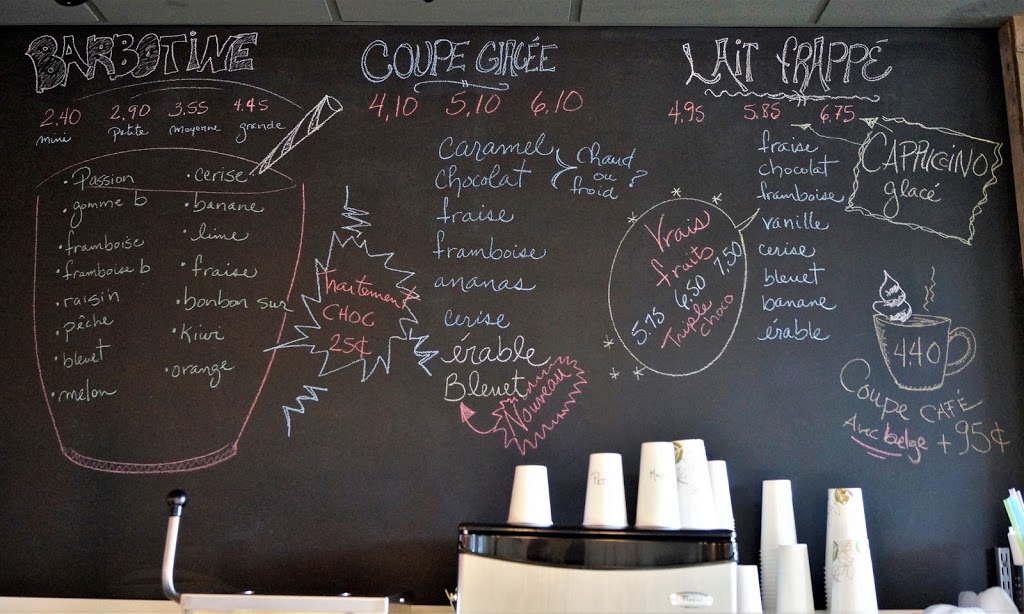 BARBOTINE
2.40 2.90 3.55 4.45
mini petite moyenne grande
• Passion
• gomme b
• framboise
• framboise b
• raisin
• pêche
• bleuet
• melon
• cerise
• banane
• lime
• fraise
• bonbon sur
• Kiwi
• orange
traitement
CHOC
25¢
COUPE GLACÉE
4,10 5,10 6,10
caramel
chocolat
chaud
ou
froid ?
fraise
framboise
ananas
cerise
érable
Bleuet
Nouveau
LAIT FRAPPÉ
4.95 5.85 6.75
fraise
chocolat
framboise
vanille
cerise
bleuet
banane
érable
Vrais
fruits
5.75 6.50 7.50
Triple
choco
CAPPUCCINO
glacé
440
Coupe CAFÉ
Avec belge + 95¢